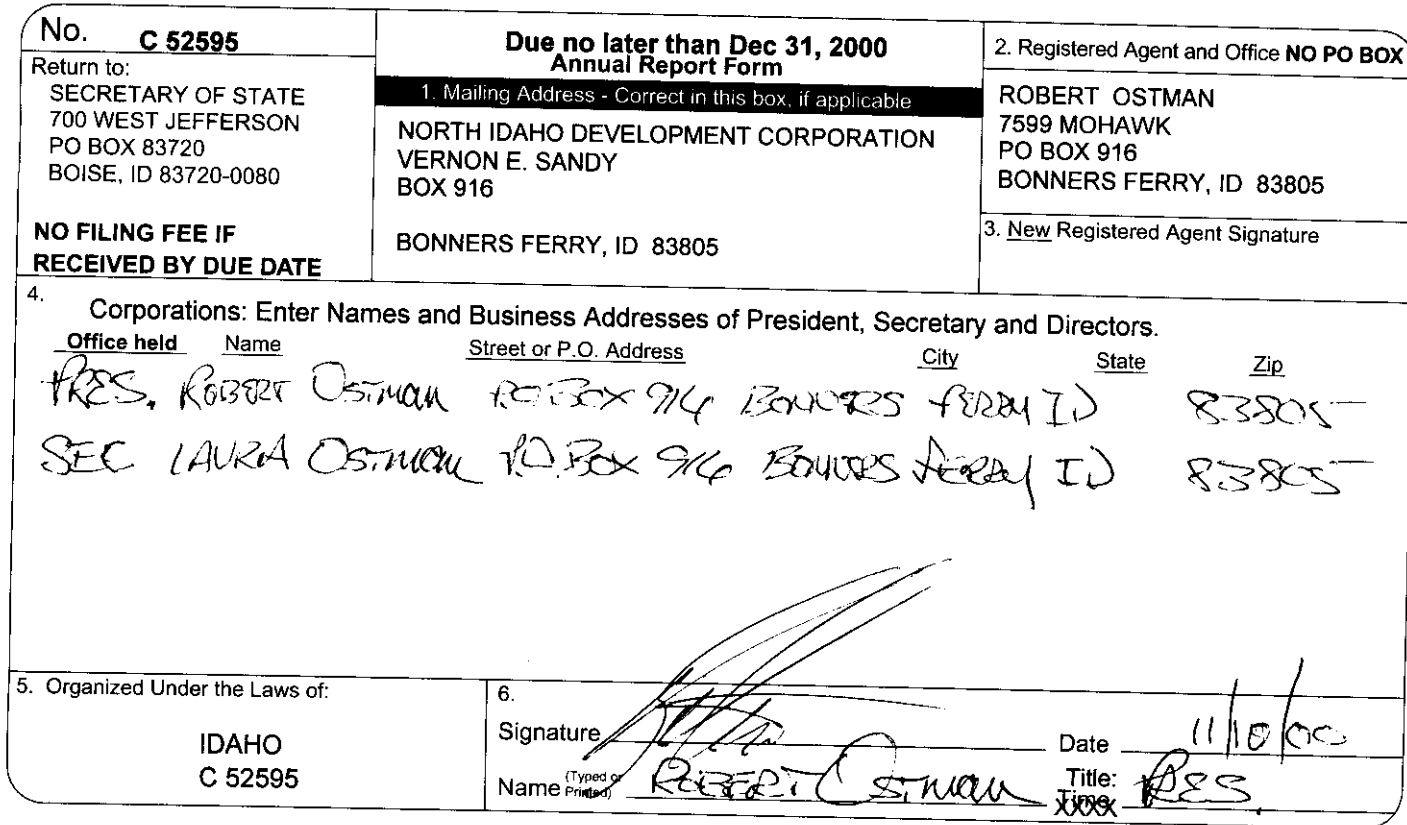 No. C 52595
Return to:
SECRETARY OF STATE
700 WEST JEFFERSON
PO BOX 83720
BOISE, ID 83720-0080
NO FILING FEE IF
RECEIVED BY DUE DATE
Due no later than Dec 31, 2000
Annual Report Form
1. Mailing Address - Correct in this box, if applicable
NORTH IDAHO DEVELOPMENT CORPORATION
VERNON E. SANDY
BOX 916
BONNERS FERRY, ID 83805
2. Registered Agent and Office NO PO BOX
ROBERT OSTMAN
7599 MOHAWK
PO BOX 916
BONNERS FERRY, ID 83805
3. New Registered Agent Signature
4.
Corporations: Enter Names and Business Addresses of President, Secretary and Directors.
Office held Name Street or P.O. Address City State Zip
PRES. ROBERT OSTMAN PO BOX 916 BONNERS FERRY ID 83805
SEC LAURA OSTMAN P.O. BOX 916 BONNERS FERRY ID 83805
5. Organized Under the Laws of:
IDAHO
C 52595
6.
Signature Date 11/10/00
Name (Typed or Printed) ROBERT OSTMAN Title: PRES.